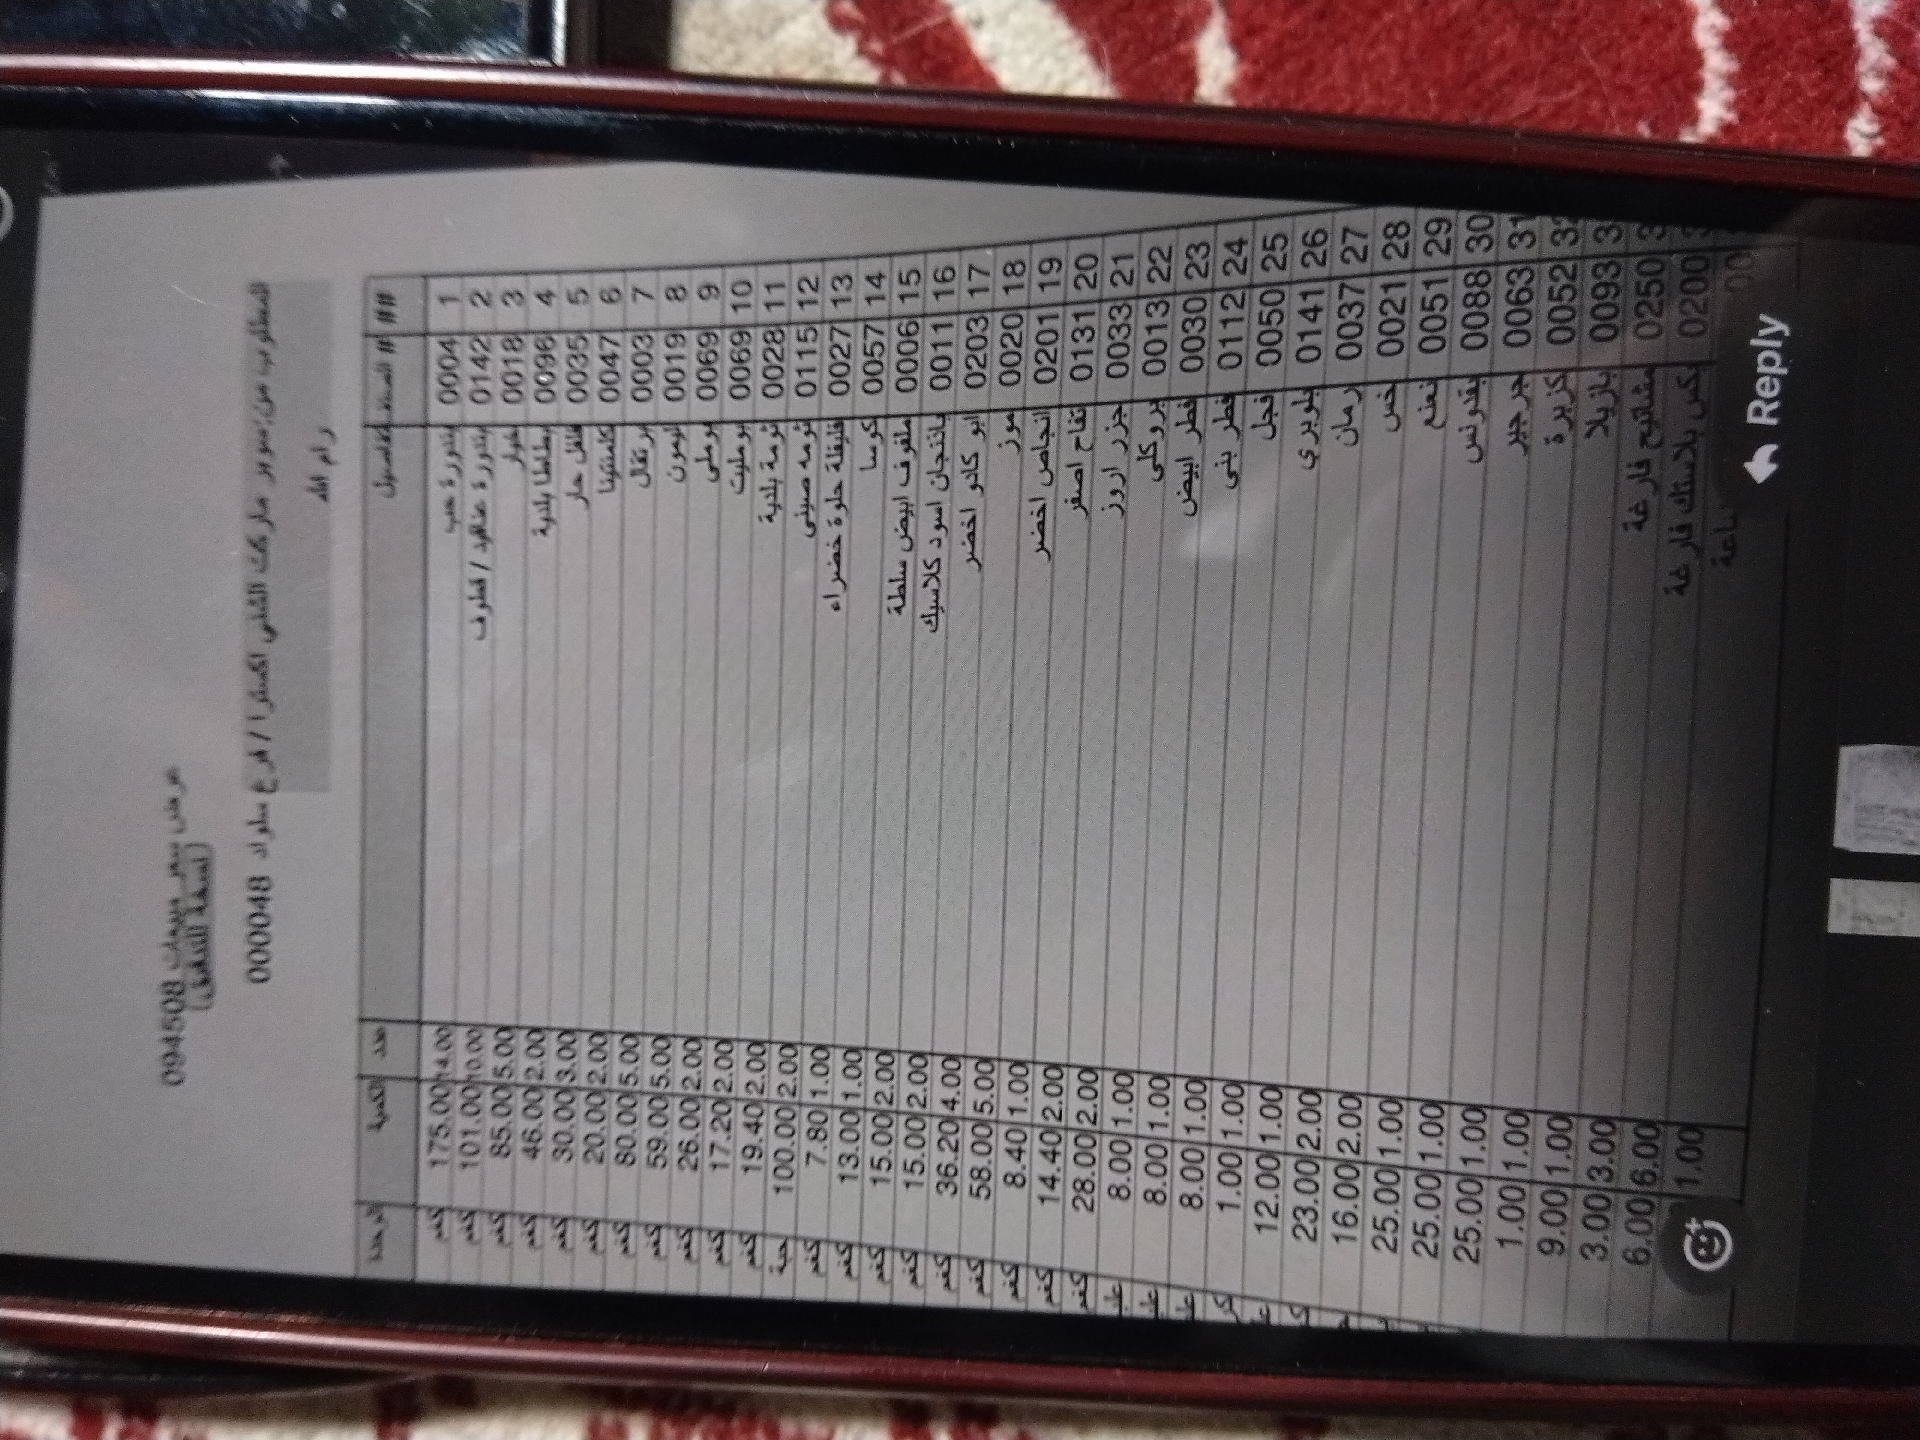 عرض سعر مبيعات 094508
(نسخة للتدقيق)
المطلوب من: سوبر ماركت الشلبي اكسترا / فرع سلواد 000048
رام الله
## # الصنف التفاصيل عدد الكمية الوحدة
1 0004 بندورة حب 14.00 175.00 كغم
2 0142 بندورة عناقيد / قطوف 10.00 101.00 كغم
3 0018 خيار 5.00 85.00 كغم
4 0096 بطاطا بلدية 2.00 46.00 كغم
5 0035 فلفل حار 3.00 30.00 كغم
6 0047 كلمنتينا 2.00 20.00 كغم
7 0003 برتقال 5.00 80.00 كغم
8 0019 ليمون 5.00 59.00 كغم
9 0069 بوملي 2.00 26.00 كغم
10 0069 بومليت 2.00 17.20 كغم
11 0028 ثومة بلدية 2.00 19.40 كغم
12 0115 ثومه صيني 2.00 100.00 حبة
13 0027 فليفلة حلوة خضراء 1.00 7.80 كغم
14 0057 كوسا 1.00 13.00 كغم
15 0006 ملفوف ابيض سلطة 2.00 15.00 كغم
16 0011 باذنجان اسود كلاسيك 2.00 15.00 كغم
17 0203 ابو كادو اخضر 4.00 36.20 كغم
18 0020 موز 5.00 58.00 كغم
19 0201 انجاص اخضر 1.00 8.40 كغم
20 0131 تفاح اصفر 2.00 14.40 كغم
21 0033 جزر اروز 2.00 28.00 كغم
22 0013 بروكلي 1.00 8.00
23 0030 فطر ابيض 1.00 8.00
24 0112 فطر بني 1.00 8.00
25 0050 فجل 1.00 1.00
26 0141 بلوبيري 1.00 12.00
27 0037 رمان 2.00 23.00
28 0021 خس 2.00 16.00
29 0051 نعنع 1.00 25.00
30 0088 بقدونس 1.00 25.00
31 0063 جرجير 1.00 25.00
0052 كزبرة 1.00 1.00
0093 بازيلا 1.00 9.00
0250 مشاتيح فارغة 3.00 3.00
0200 بكس بلاستك فارغة 6.00 6.00
1.00
Reply